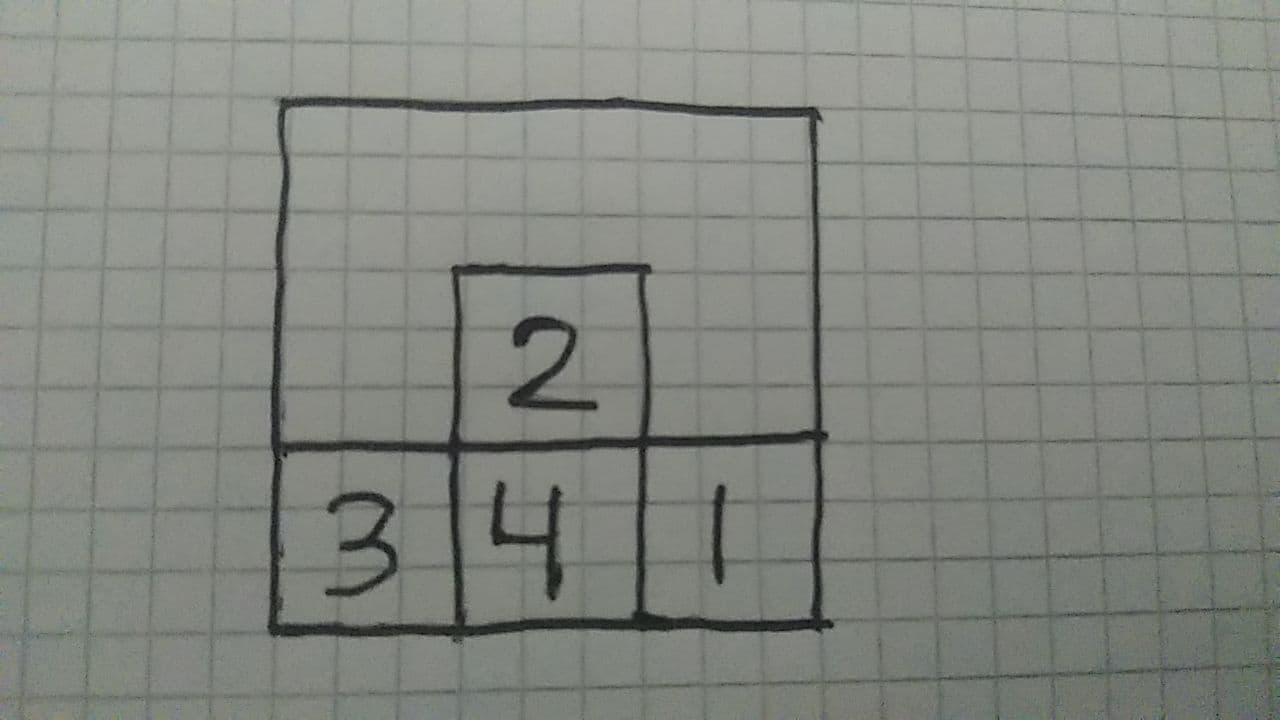 2
3 4 1